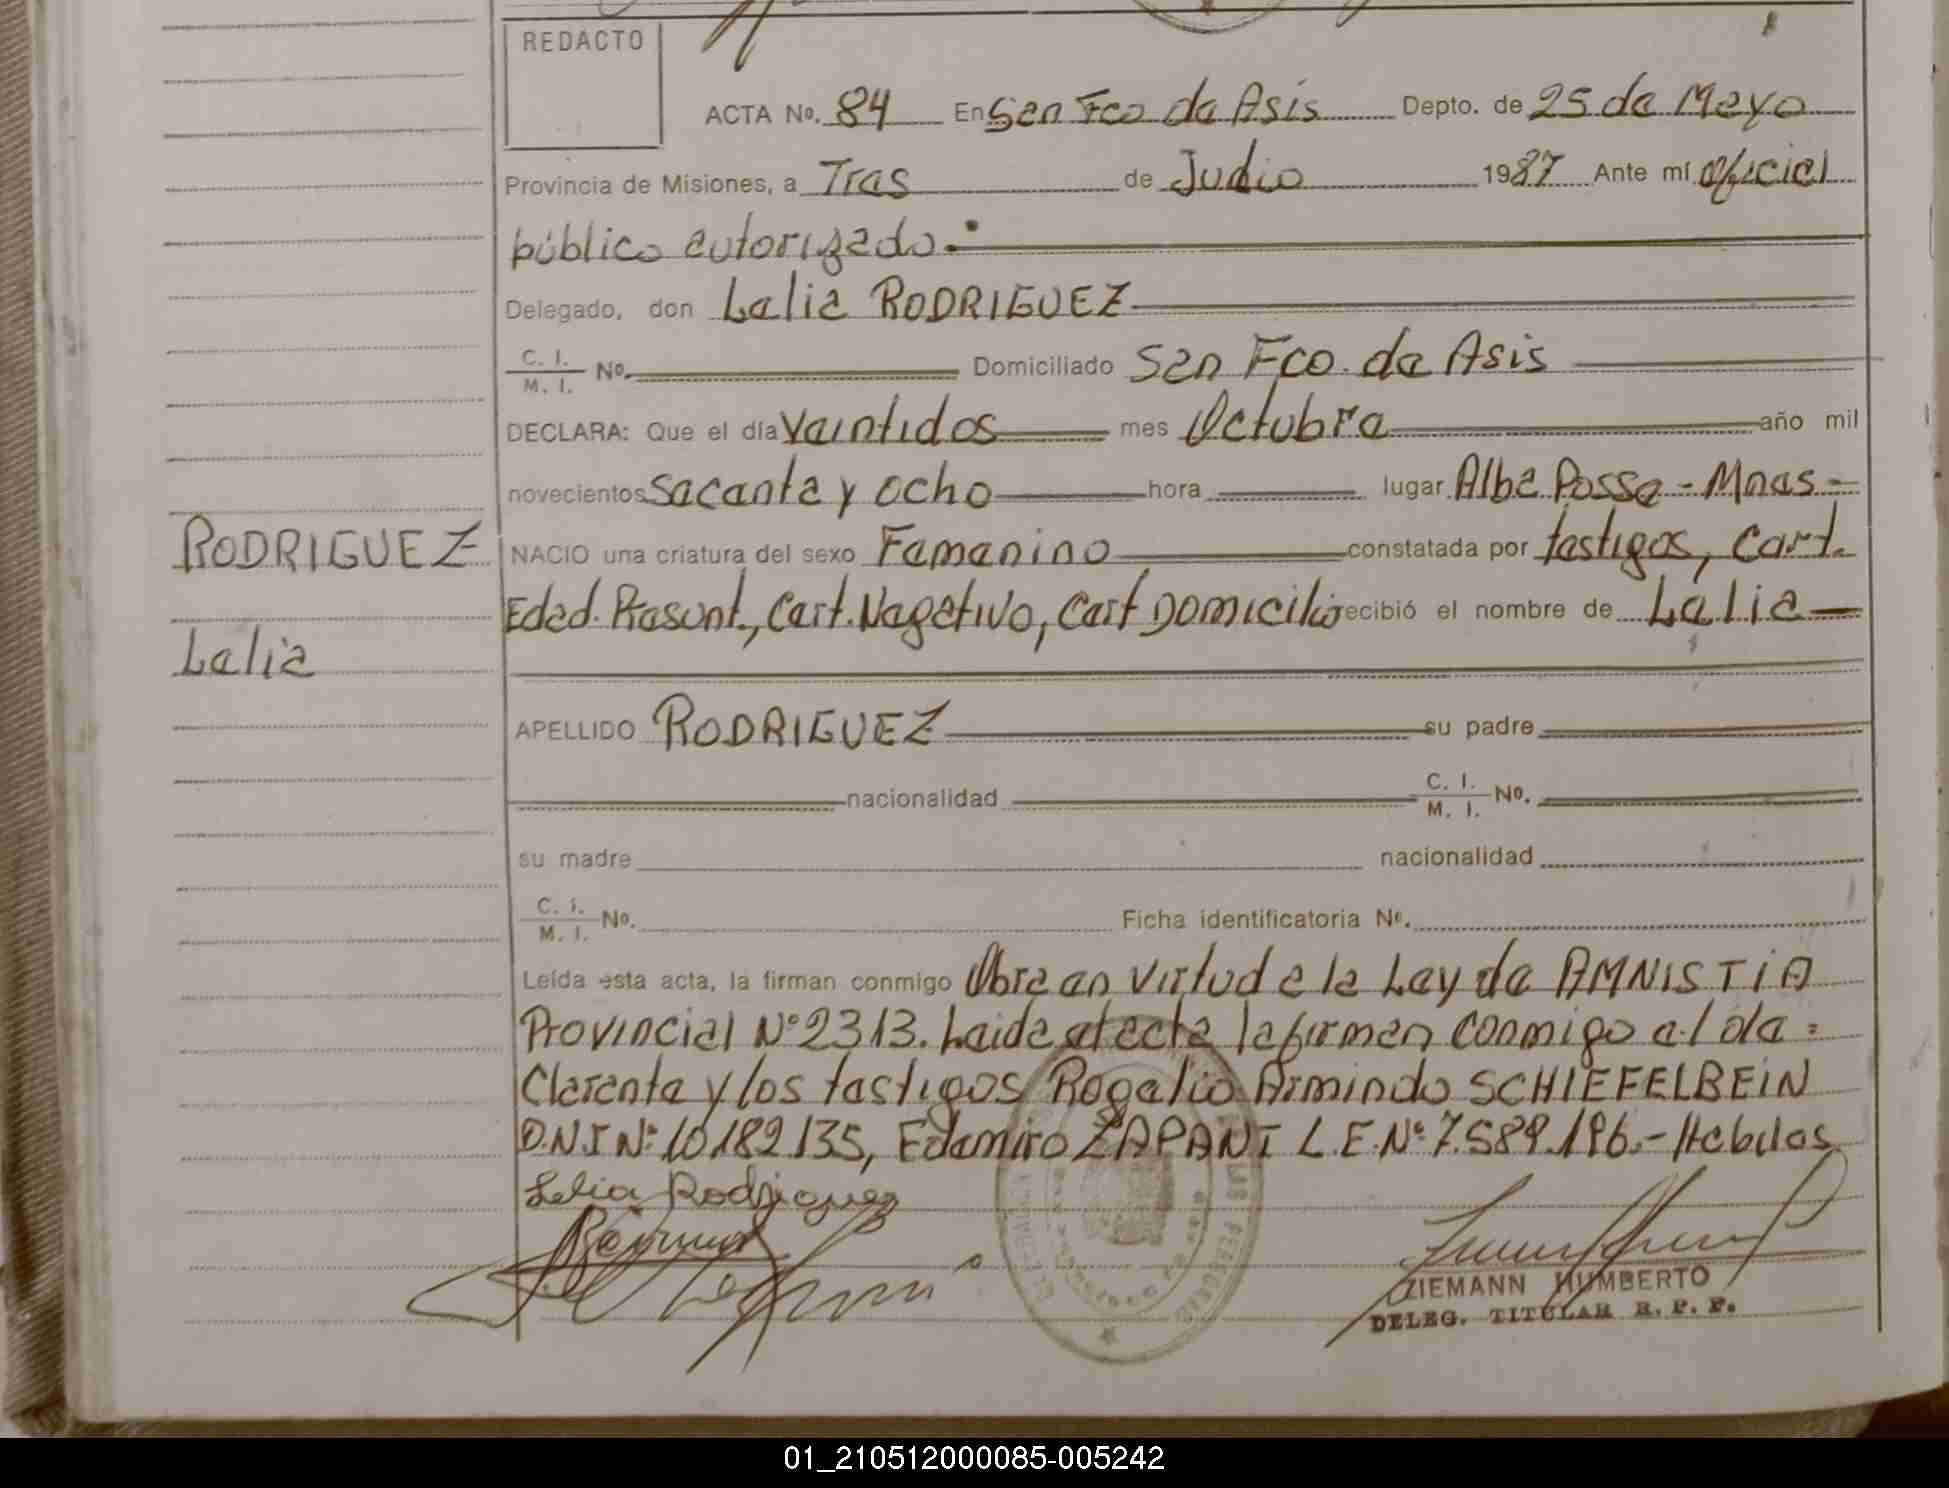 REDACTO
ACTA No. 84 En San Fco de Asis Depto. de 25 de Mayo
Provincia de Misiones, a Tres de Julio 1987 Ante mí Oficial
público autorizado.-
Delegado, don Lelia RODRIGUEZ
C. I. / M. I. No. Domiciliado San Fco. de Asis
DECLARA: Que el día Veintidos mes Octubre año mil
novecientos Sesenta y ocho hora lugar Alba Posse - Mnes -
RODRIGUEZ
NACIO una criatura del sexo Femenino constatada por testigos, Cert.
Edad. Presunt., Cert. Negativo, Cert Domicilio recibió el nombre de Lelia
Lelia
APELLIDO RODRIGUEZ su padre
nacionalidad C. I. / M. I. No.
su madre nacionalidad
C. I. / M. I. No. Ficha identificatoria No.
Leída esta acta, la firman conmigo Obra en virtud a la Ley de AMNISTIA
Provincial N° 2313. Leida el acta la firman conmigo el de=
clarante y los testigos Rogelio Armindo SCHIEFELBEIN
D.N.I N° 10.182.135, Edemiro ZAPANI L.E. N° 7.589.196.- Habiles
Lelia Rodriguez
ZIEMANN HUMBERTO
DELEG. TITULAR R. P. P.
01_210512000085-005242